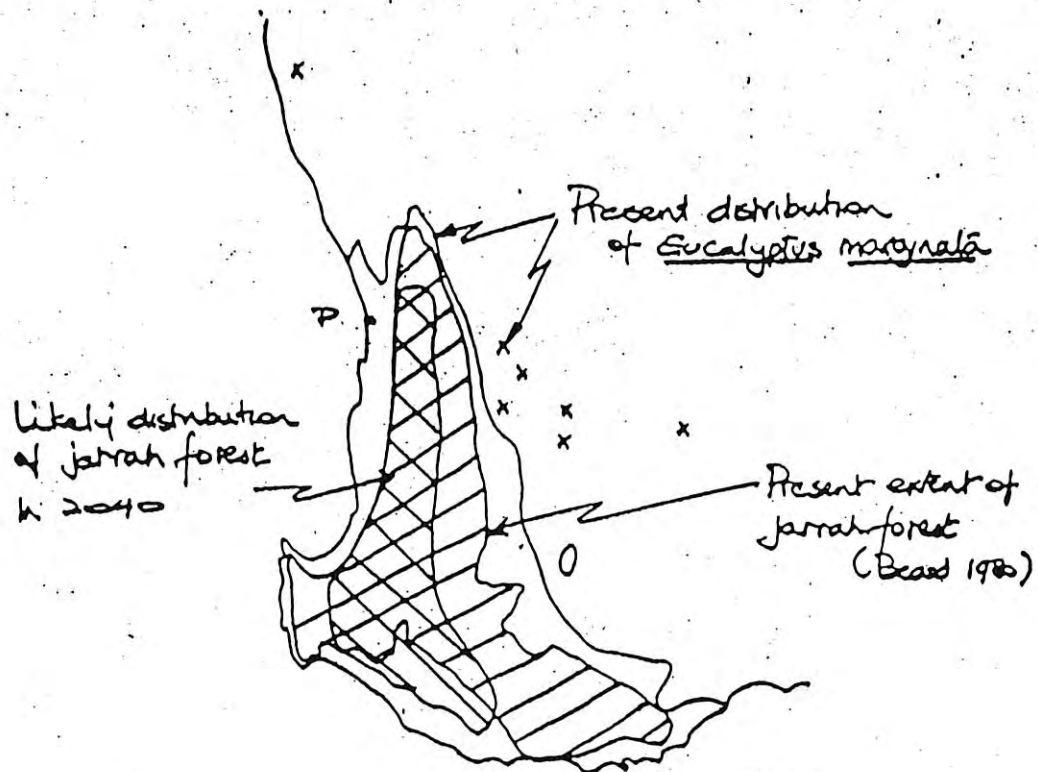 Present distribution
of Eucalyptus marginata
P
Likely distribution
of jarrah forest
in 2040
Present extent of
jarrah forest
(Beard 1980)